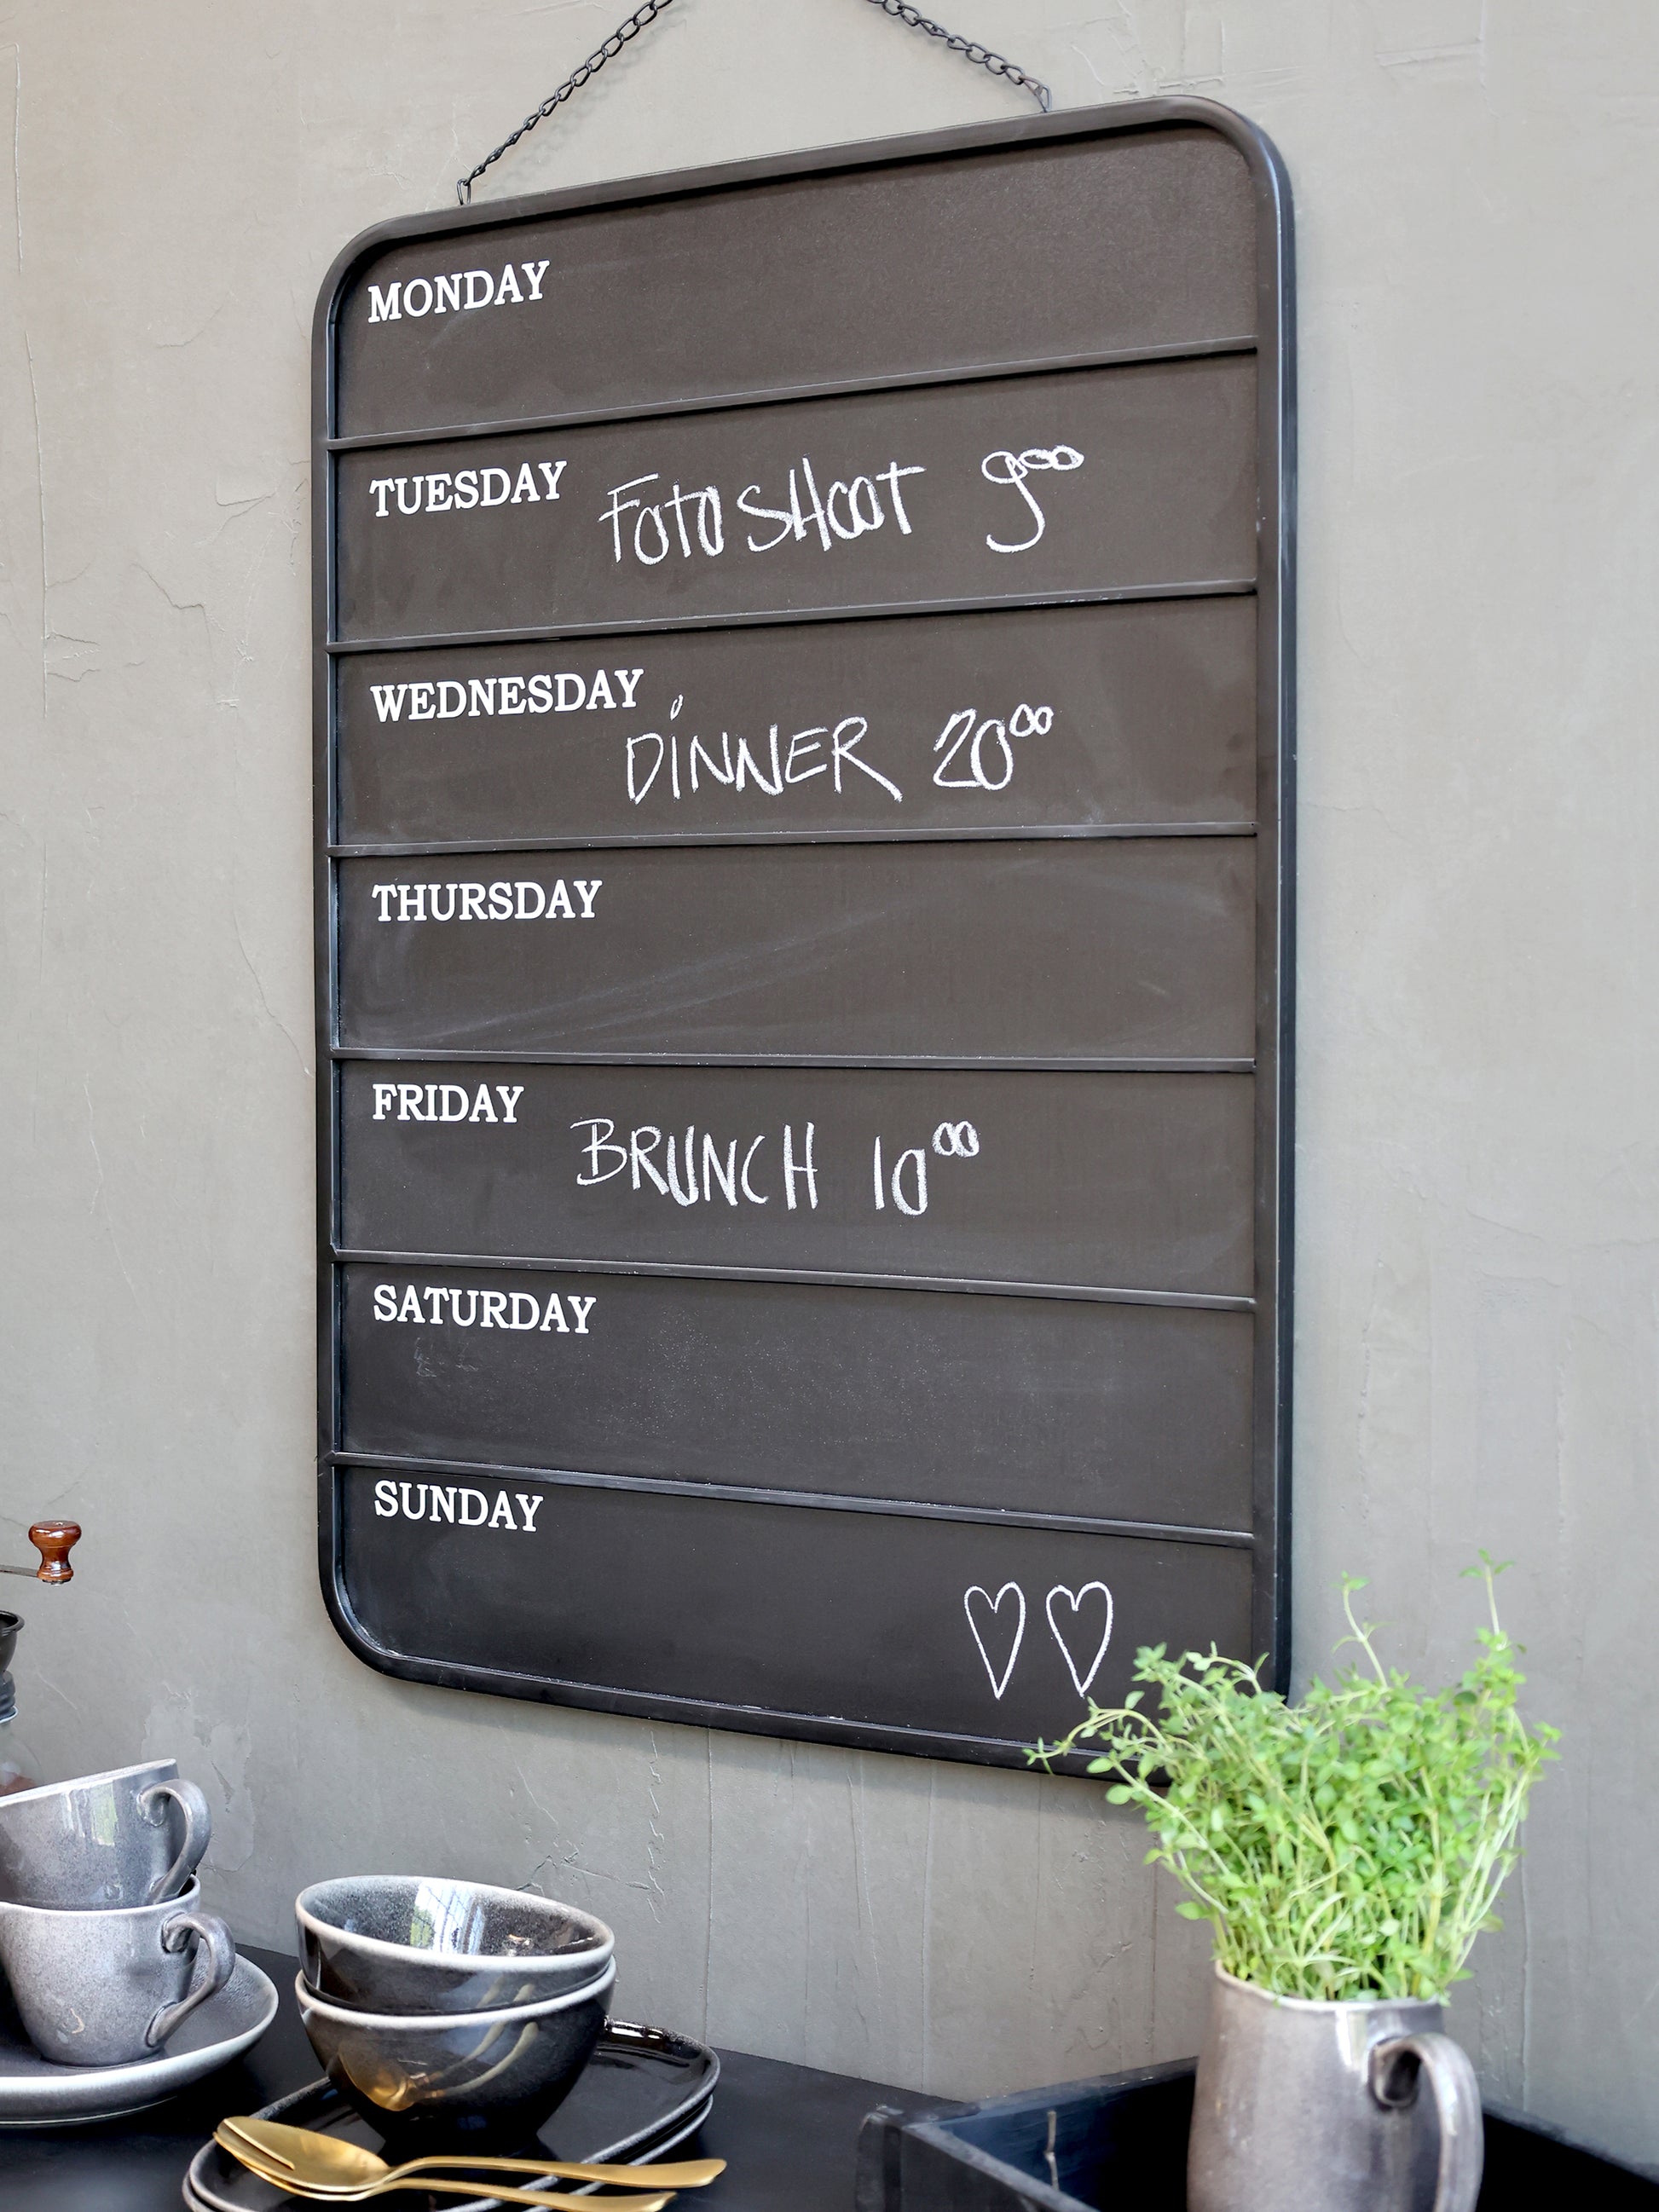 MONDAY
TUESDAY Foto SHOOT 9⁰⁰
WEDNESDAY
DiNNER 20⁰⁰
THURSDAY
FRIDAY
BRUNCH 10⁰⁰
SATURDAY
SUNDAY